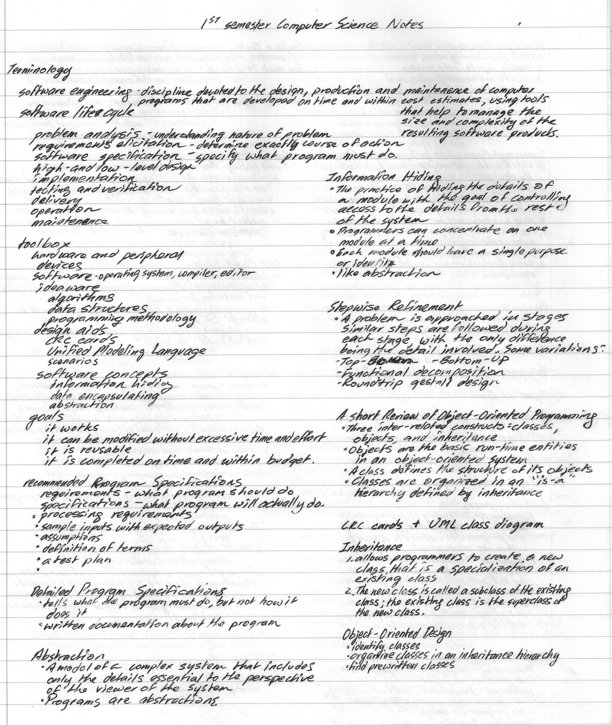 1ST semester Computer Science Notes
Terminology
software engineering - discipline devoted to the design, production and maintenance of computer
programs that are developed on time and within cost estimates, using tools
that help to manage the
size and complexity of the
resulting software products.
software lifecycle
problem analysis - understanding nature of problem
requirements elicitation - determine exactly course of action
software specification - specify what program must do.
high- and low-level design
implementation
testing and verification
delivery
operation
maintenance
toolbox
hardware and peripheral
devices
software - operating system, compiler, editor
ideaware
algorithms
data structures
programming methodology
design aids
CRC cards
Unified Modeling Language
scenarios
software concepts
information hiding
data encapsulating
abstraction
goals
it works
it can be modified without excessive time and effort
it is reusable
it is completed on time and within budget.
recommended Program Specifications
requirements - what program should do
specifications - what program will actually do.
• processing requirements
• sample inputs with expected outputs
• assumptions
• definition of terms
• a test plan
•
Detailed Program Specifications
• tells what the program must do, but not how it
does it
• written documentation about the program
Abstraction
• A model of a complex system that includes
only the details essential to the perspective
of the viewer of the system
• Programs are abstractions
Information Hiding
• The practice of hiding the details of
a module with the goal of controlling
access to the details from the rest
of the system
• Programmers can concentrate on one
module at a time
• Each module should have a single purpose
or identity
• like abstraction
Stepwise Refinement
• A problem is approached in stages
similar steps are followed during
each stage, with the only difference
being the detail involved. Some variations:
- Top - Bottom-Up
- Functional decomposition
- Roundtrip gestalt design
A short Review of Object-Oriented Programming
• Three inter-related constructs: classes,
objects, and inheritance
• Objects are the basic run-time entities
in an object-oriented system
• A class defines the structure of its objects
• Classes are organized in an "is-a"
hierarchy defined by inheritance
CRC cards + UML class diagram
Inheritance
1. allows programmers to create a new
class that is a specialization of an
existing class
2. The new class is called a subclass of the existing
class; the existing class is the superclass of
the new class.
Object-Oriented Design
• identify classes
• organize classes in an inheritance hierarchy
• find prewritten classes